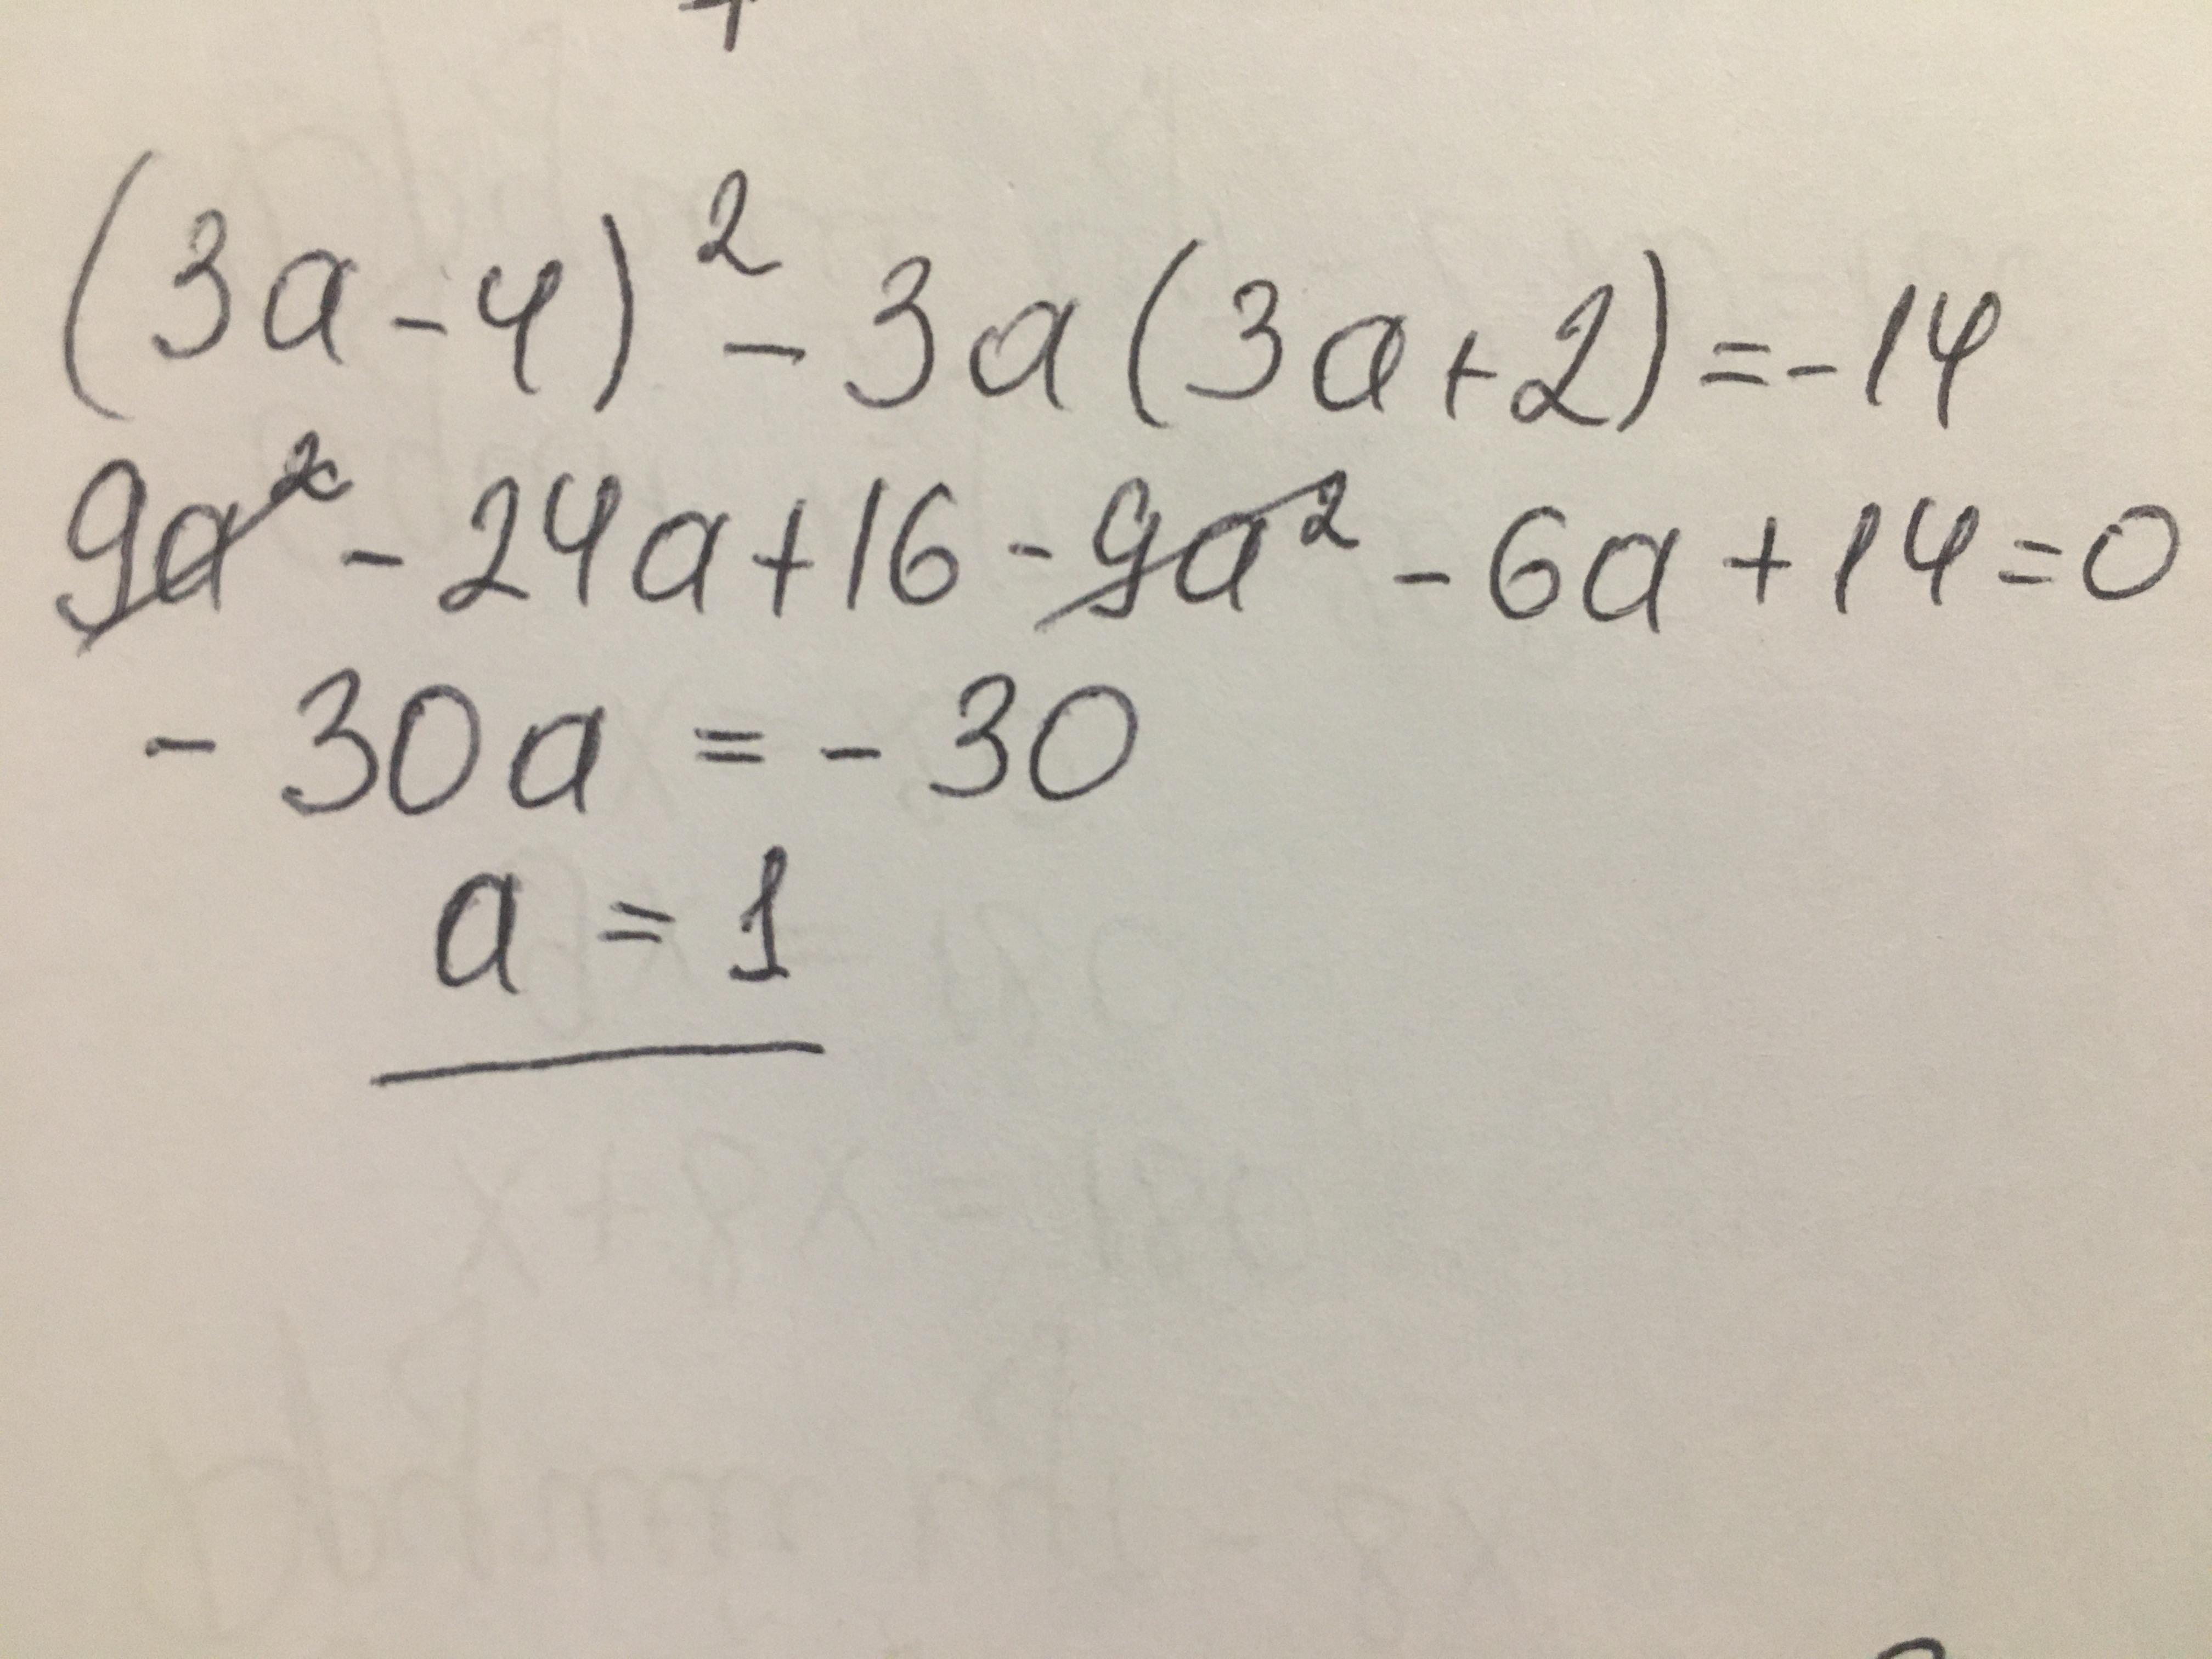 (3a-4)² - 3a(3a+2) = -14
9a² - 24a + 16 - 9a² - 6a + 14 = 0
- 30a = - 30
a = 1